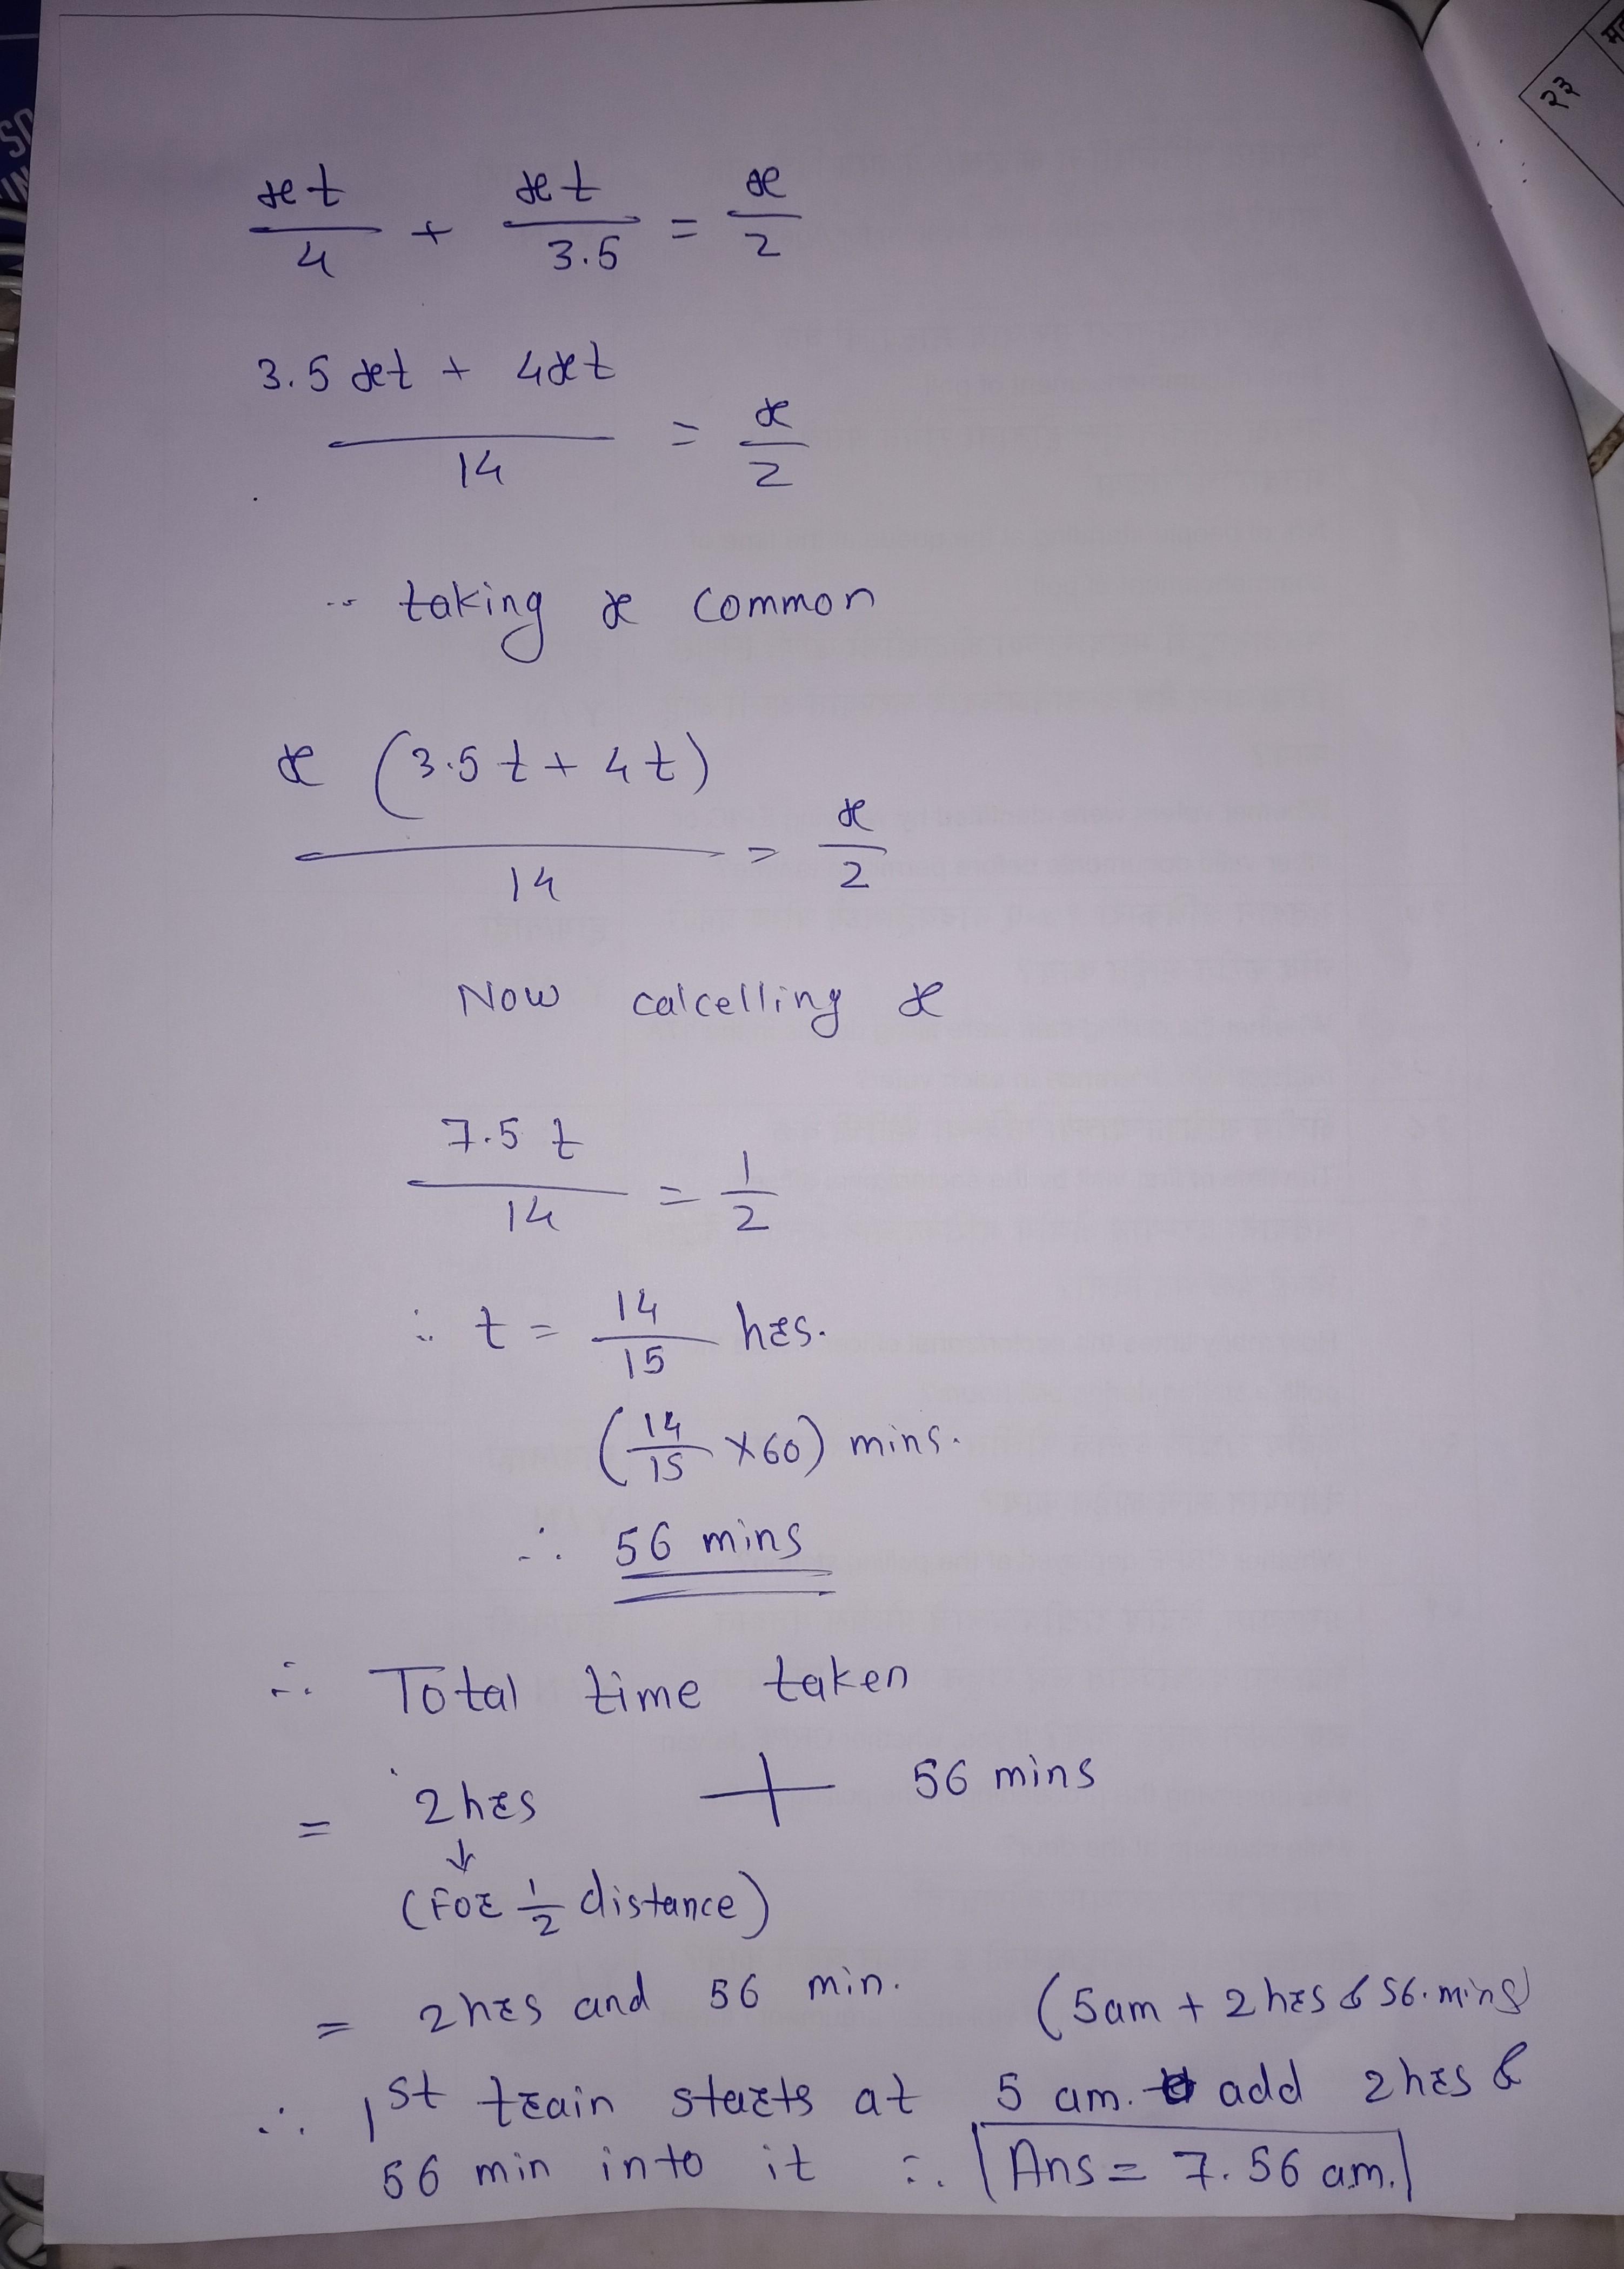 xt/4 + xt/3.5 = x/2
3.5 xt + 4xt / 14 = x/2
taking x common
x (3.5 t + 4 t) / 14 = x/2
Now calcelling x
7.5 t / 14 = 1/2
∴ t = 14/15 hrs.
(14/15 × 60) mins.
∴ 56 mins
∴ Total time taken
= 2 hrs + 56 mins
↓
(For 1/2 distance)
= 2 hrs and 56 min. (5am + 2 hrs & 56. mins)
∴ 1st train starts at 5 am. add 2 hrs &
56 min into it ∴ Ans = 7.56 am.
२३